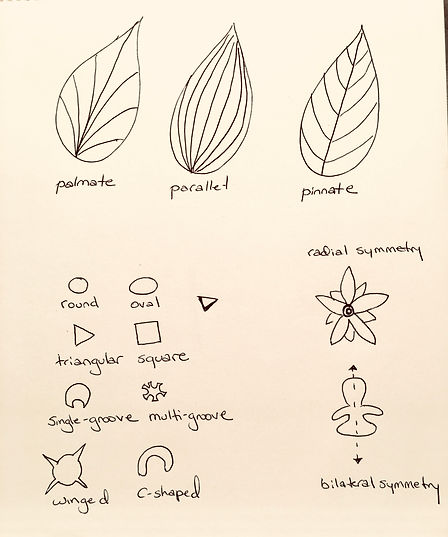 palmate parallel pinnate
radial symmetry
round oval
triangular square
single-groove multi-groove
winged C-shaped
bilateral symmetry